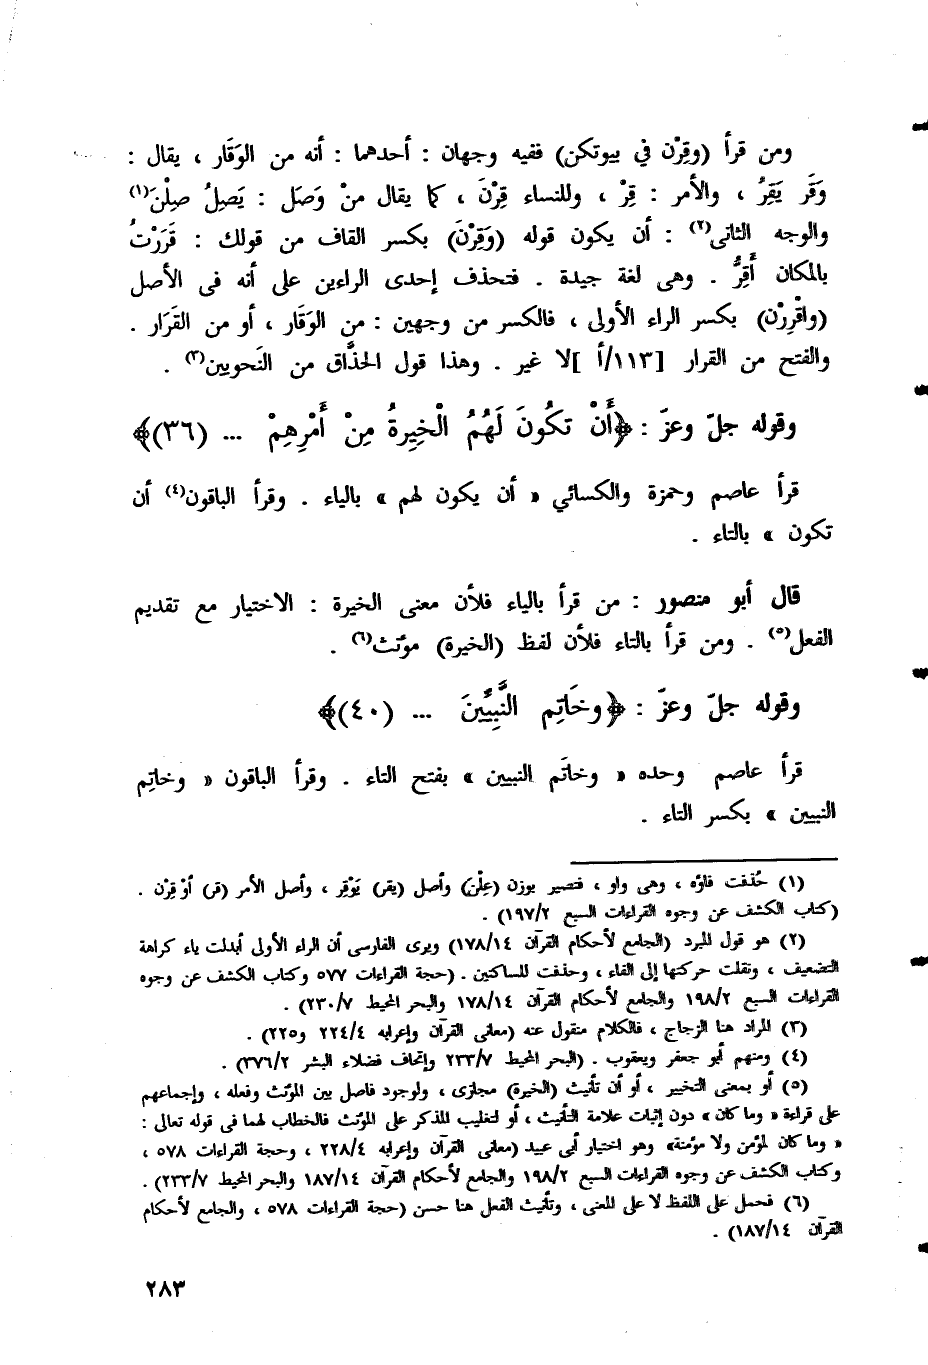 ومن قرأ (وقِرْن في بيوتكن) ففيه وجهان : أحدهما : أنه من الوَقَار ، يقال :
وَقَر يَقِرُ ، والأمر : قِرْ ، وللنساء قِرْنَ ، كما يقال منْ وَصَل : يَصِلُ صِلْنَ(١)
والوجه الثانى(٢) : أن يكون قوله (وَقِرْنَ) بكسر القاف من قولك : قَرَرْتُ
بالمكان أَقِرُّ . وهى لغة جيدة . فتحذف إحدى الراءين على أنه فى الأصل
(واقْرِرْن) بكسر الراء الأولى ، فالكسر من وجهين : من الوَقَار ، أو من القَرَار .
والفتح من القرار [١١٣/أ ]لا غير . وهذا قول الحذَّاق من النَحويين(٣) .
وقوله جلّ وعزّ : ﴿أَنْ تكُونَ لَهُمُ الْخِيرةُ مِنْ أَمْرِهِمْ ... (٣٦)﴾
قرأ عاصم وحمزة والكسائي « أن يكون لهم » بالياء . وقرأ الباقون(٤) أن
تكون » بالتاء .
قال أبو منصور : من قرأ بالياء فلأن معنى الخيرة : الاختيار مع تقديم
الفعل(٥) . ومن قرأ بالتاء فلأن لفظ (الخيرة) مؤنث(٦) .
وقوله جلّ وعزّ : ﴿وخَاتِم النَّبِيِّينَ ... (٤٠)﴾
قرأ عاصم وحده « وخاتَم النبيين » بفتح التاء . وقرأ الباقون « وخاتِم
النبيين » بكسر التاء .
(١) حُذفت فاؤه ، وهى واو ، فتصير بوزن (عِلْنَ) وأصل (يقر) يَوْقِر ، وأصل الأمر (قر) أوْقِرْن .
(كتاب الكشف عن وجوه القراءات السبع ١٩٧/٢) .
(٢) هو قول المبرد (الجامع لأحكام القرآن ١٧٨/١٤) ويرى الفارسى أن الراء الأولى أبدلت ياء كراهة
التضعيف ، ونقلت حركتها إلى الفاء ، وحذفت للساكنين . (حجة القراءات ٥٧٧ وكتاب الكشف عن وجوه
القراءات السبع ١٩٨/٢ والجامع لأحكام القرآن ١٧٨/١٤ والبحر المحيط ٢٣٠/٧) .
(٣) المراد هنا الزجاج ، فالكلام منقول عنه (معانى القرآن وإعرابه ٢٢٤/٤ و٢٢٥) .
(٤) ومنهم أبو جعفر ويعقوب . (البحر المحيط ٢٣٣/٧ وإتحاف فضلاء البشر ٣٧٦/٢) .
(٥) أو بمعنى التخيير ، أو أن تأنيث (الخيرة) مجازى ، ولوجود فاصل بين المؤنث وفعله ، وإجماعهم
على قراءة « وما كان » دون إثبات علامة التأنيث ، أو لتغليب المذكر على المؤنث فالخطاب لهما فى قوله تعالى :
« وما كان لمؤمن ولا مؤمنة» وهو اختيار أبى عبيد (معانى القرآن وإعرابه ٢٢٨/٤ ، وحجة القراءات ٥٧٨ ،
وكتاب الكشف عن وجوه القراءات السبع ١٩٨/٢ والجامع لأحكام القرآن ١٨٧/١٤ والبحر المحيط ٢٣٣/٧) .
(٦) فحمل على اللفظ لا على المعنى ، وتأنيث الفعل هنا حسن (حجة القراءات ٥٧٨ ، والجامع لأحكام
القرآن ١٨٧/١٤) .
٢٨٣